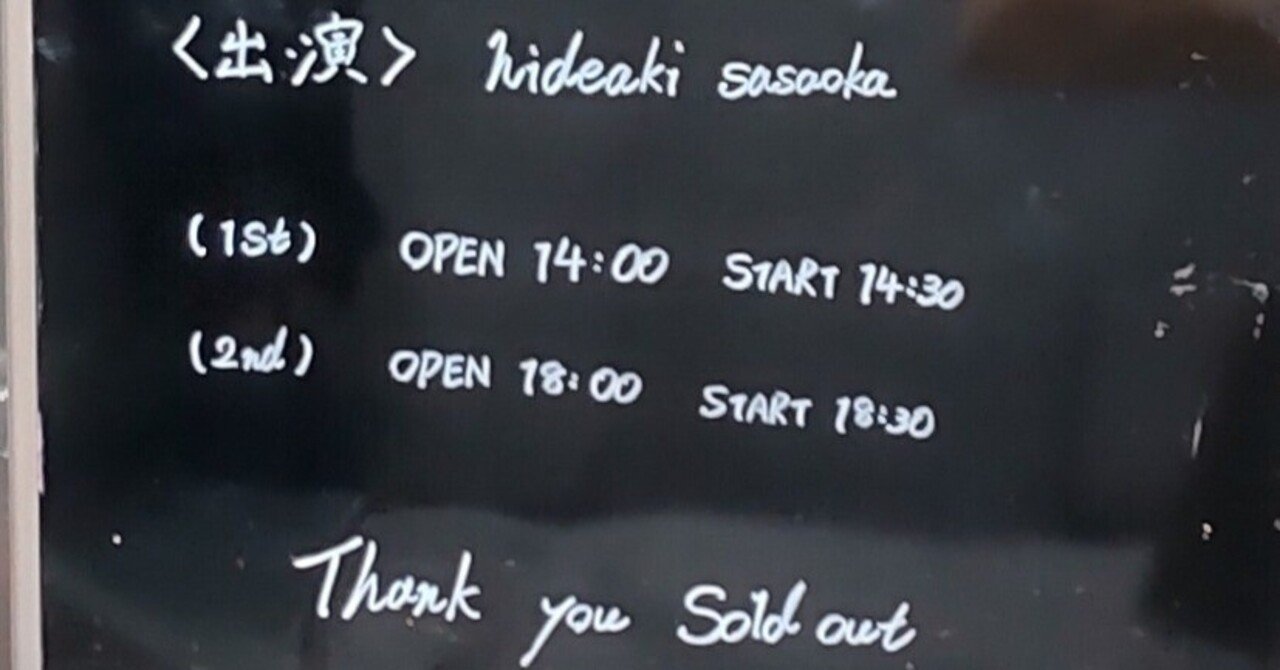 <出演> hideaki sasaoka
(1st) OPEN 14:00 START 14:30
(2nd) OPEN 18:00 START 18:30
Thank you Sold out